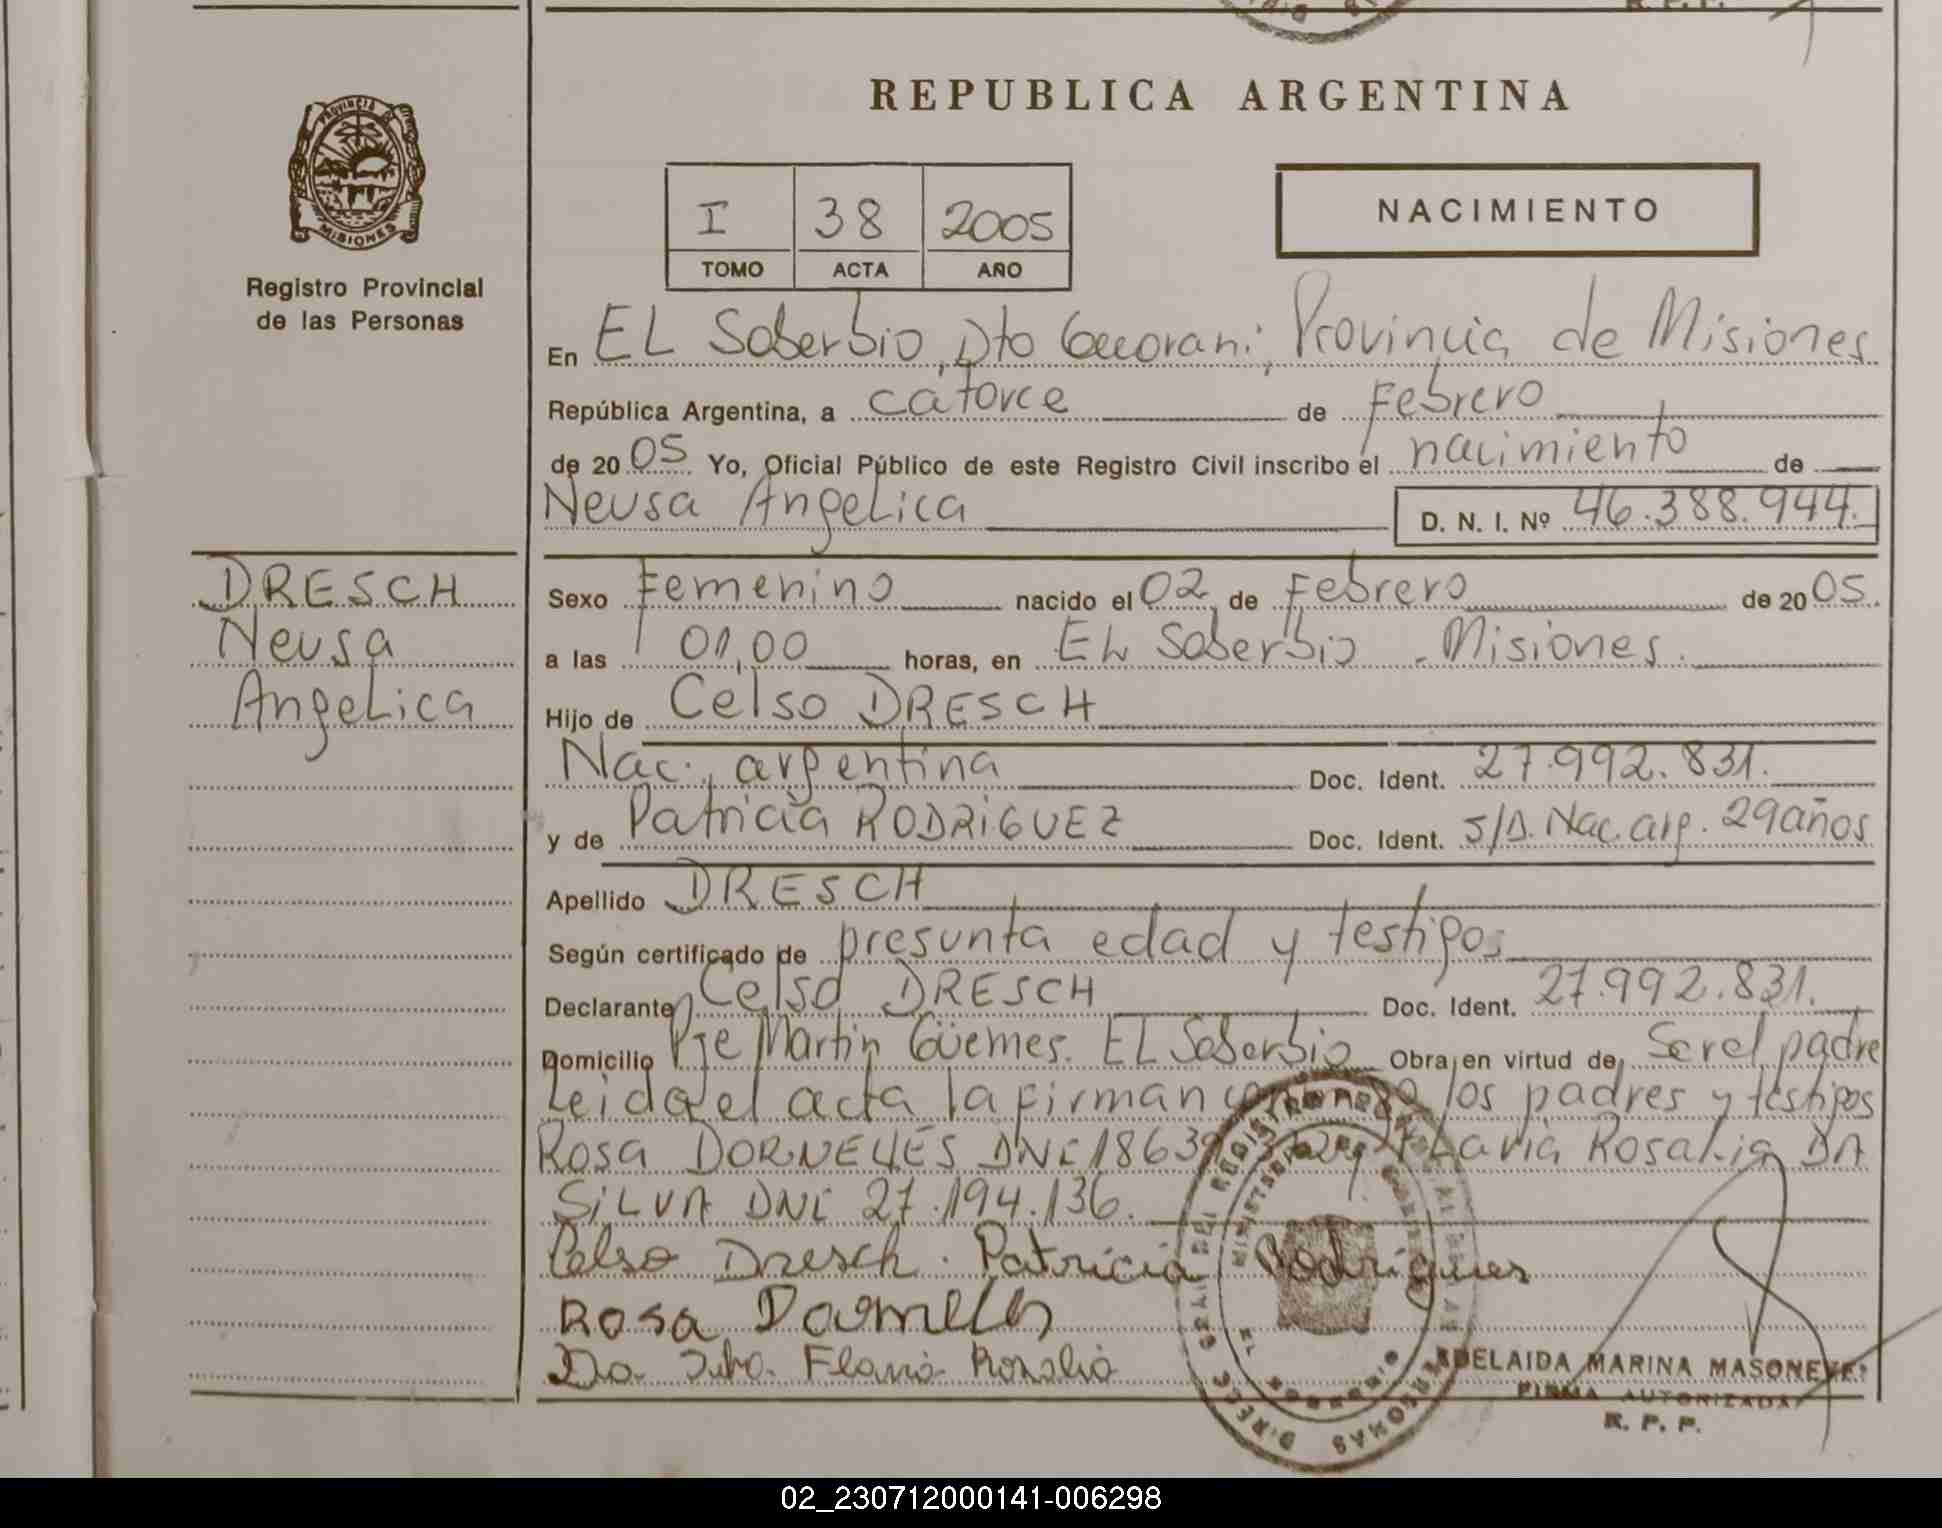 REPUBLICA ARGENTINA
PROVINCIA DE
MISIONES
Registro Provincial
de las Personas
I 38 2005
TOMO ACTA AÑO
NACIMIENTO
En EL Soberbio, Dto Guarani, Provincia de Misiones
República Argentina, a catorce de Febrero
de 20 05 Yo, Oficial Público de este Registro Civil inscribo el nacimiento de
Neusa Angelica D. N. I. Nº 46.388.944.
DRESCH
Neusa
Angelica
Sexo Femenino nacido el 02 de Febrero de 20 05.
a las 01,00 horas, en EL Soberbio - Misiones.
Hijo de Celso DRESCH
Nac. argentina Doc. Ident. 27.992.831.
y de Patricia RODRIGUEZ Doc. Ident. S/D. Nac. arg. 29 años
Apellido DRESCH
Según certificado de presunta edad y testigos
Declarante Celso DRESCH Doc. Ident. 27.992.831.
Domicilio Pje Martin Güemes. EL Soberbio Obra en virtud de Ser el padre
Leida el acta la firman los padres y testigos
Rosa DORNELLES DNI Flavia Rosalia DA
SILVA DNI 27.194.136.
Celso Dresch. Patricia Rodrigues
Rosa Dornelles
Da. Silva. Flavia Rosalia
ADELAIDA MARINA MASONEVE
FIRMA AUTORIZADA
R. P. P.
02_230712000141-006298